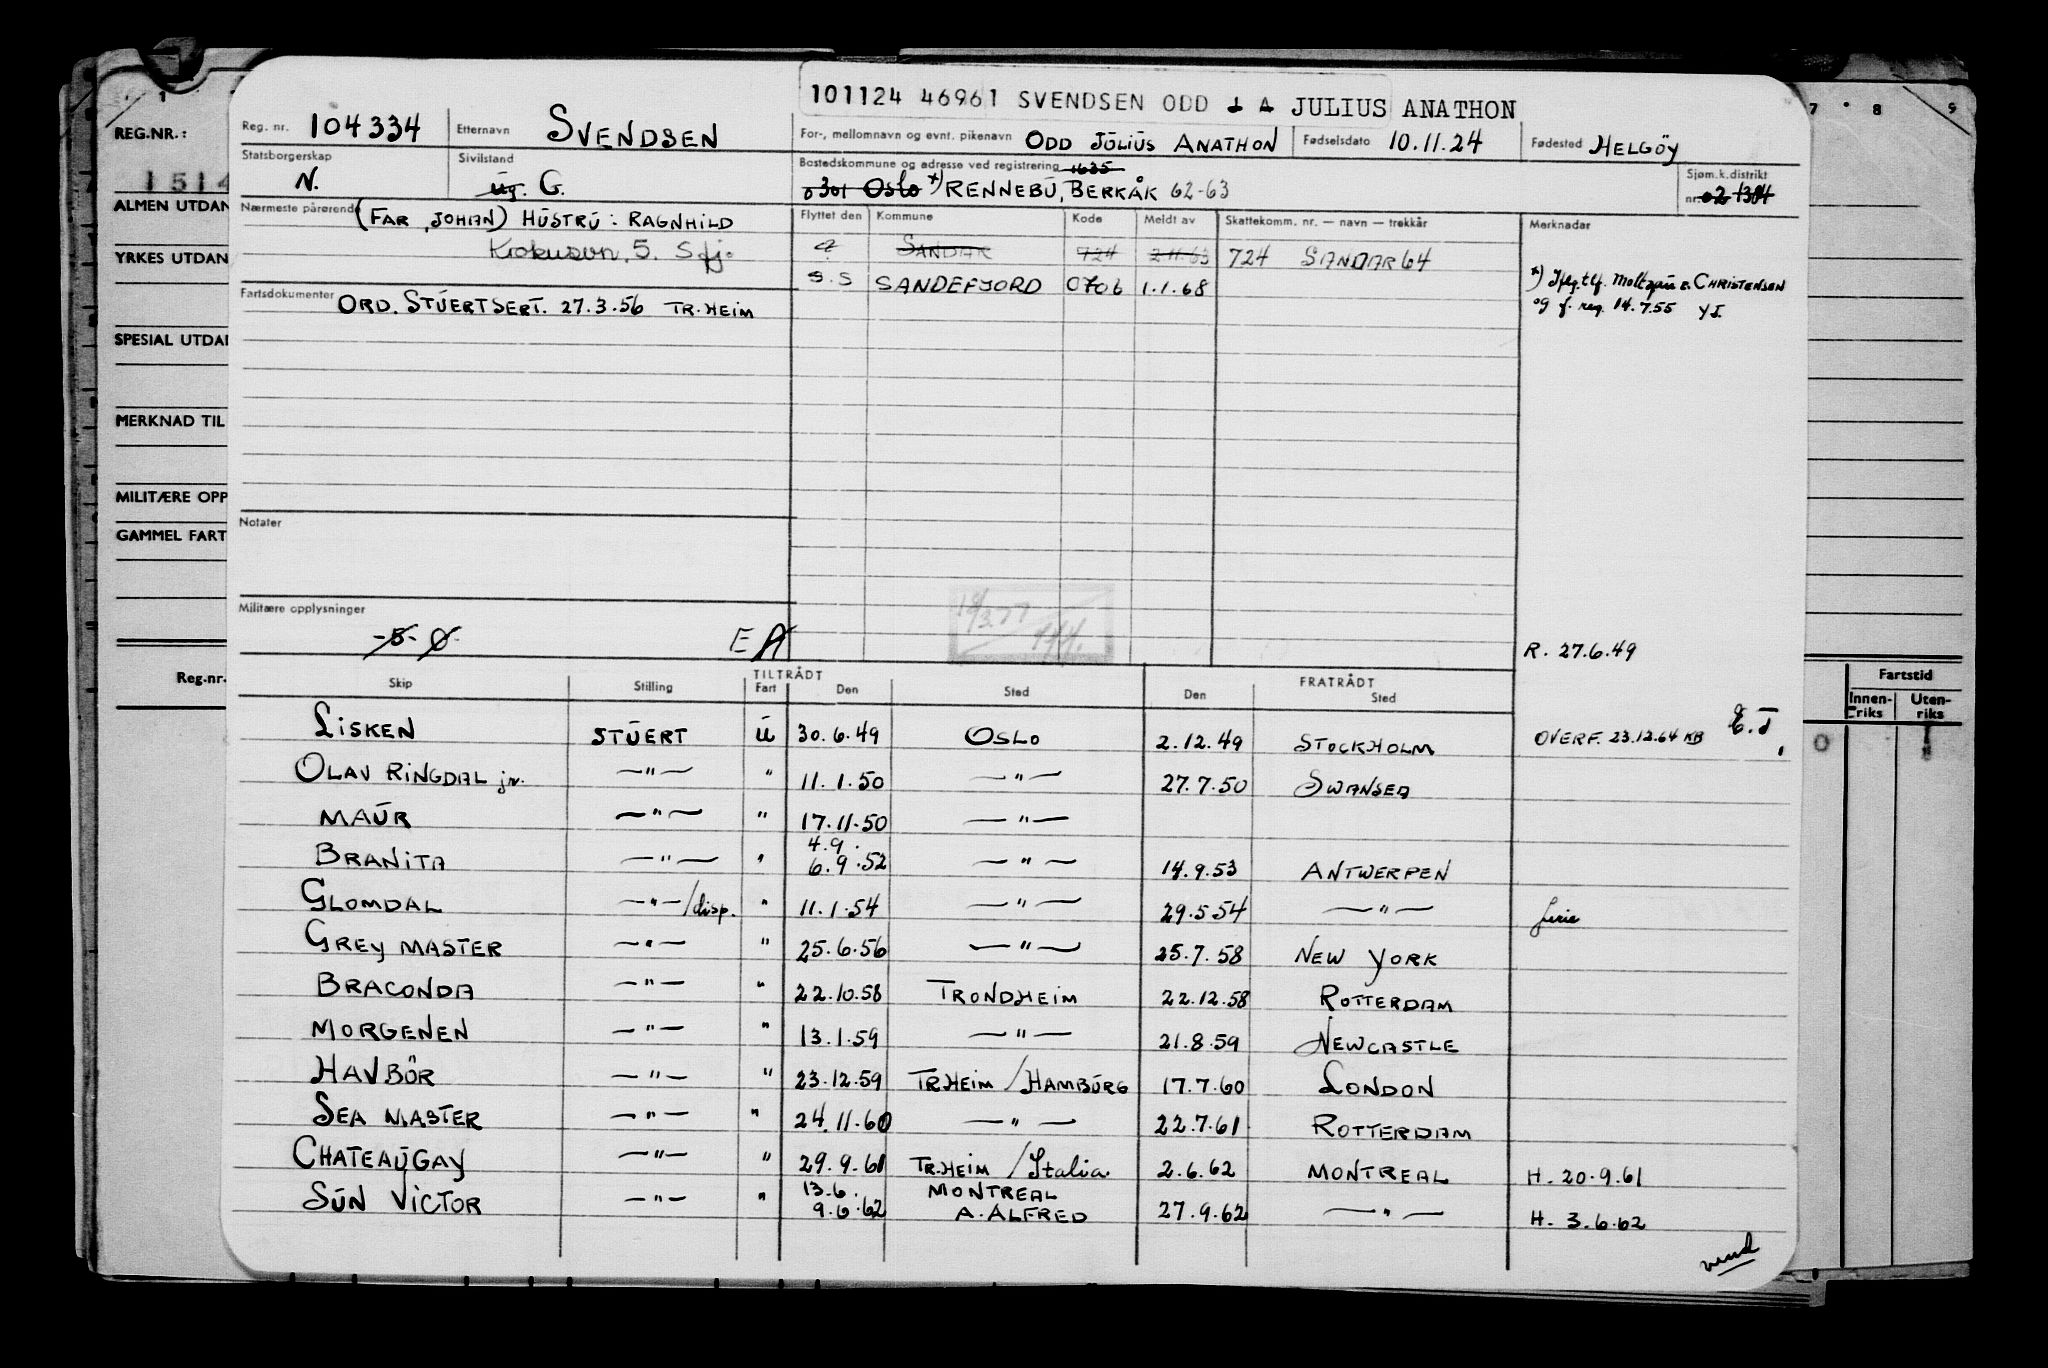 101124 46961 SVENDSEN ODD J A JULIUS ANATHON
Reg. nr. 104334 Etternavn SVENDSEN For-, mellomnavn og evnt. pikenavn ODD JÚLIÚS ANATHON Fødselsdato 10.11.24 Fødested HELGÖY
Statsborgerskap N. Sivilstand Úg. G. Bostedskommune og adresse ved registrering 1635 0301 OSLO *) RENNEBÚ, BERKÅK 62-63 Sjøm.k.distrikt nr. 02 1304
Nærmeste pårørende (FAR, JOHAN) HÚSTRÚ: RAGNHILD Flyttet den Kommune Kode Meldt av Skattekomm. nr. — navn — trekkår Merknadar
5. Sfj. ? SANDAR 724 2.11.63 724 SANDAR 64
S.S SANDEFJORD 0706 1.1.68 *) tlf. CHRISTENSEN
Fartsdokumenter ORD. STÚERTSERT. 27.3.56 TR.HEIM og f. reg. 14.7.55 YI.
Notater
Militære opplysninger
-5- Ø E A
R. 27.6.49
Skip Stilling TILTRÅDT Fart Den Sted FRATRÅDT Den Sted
LISKEN STÚERT Ú 30.6.49 OSLO 2.12.49 STOCKHOLM OVERF. 23.12.64 KB E.T.
OLAV RINGDAL jr. —"— " 11.1.50 —"— 27.7.50 SWANSEA
MAÚR —"— " 17.11.50 —"—
BRANITA —"— " 4.9. 6.9.52 —"— 14.9.53 ANTWERPEN
GLOMDAL —"—/disp. " 11.1.54 —"— 29.5.54 —"— ferie
GREY MASTER —"— " 25.6.56 —"— 25.7.58 NEW YORK
BRACONDA —"— " 22.10.58 TRONDHEIM 22.12.58 ROTTERDAM
MORGENEN —"— " 13.1.59 —"— 21.8.59 NEWCASTLE
HAVBÖR —"— " 23.12.59 TR.HEIM / HAMBÚRG 17.7.60 LONDON
SEA MASTER —"— " 24.11.60 —"— 22.7.61 ROTTERDAM
CHATEAÚGAY —"— " 29.9.61 TR.HEIM / Italia 2.6.62 MONTREAL H. 20.9.61
SÚN VICTOR —"— " 13.6. 9.6.62 MONTREAL A. ALFRED 27.9.62 —"— H. 3.6.62
vend
REG.NR.:
1514
ALMEN UTDAN
YRKES UTDAN
SPESIAL UTDA
MERKNAD TIL
MILITÆRE OPP
GAMMEL FART
Reg.nr.
7 8 9
Fartstid
Innen-riks Uten-riks